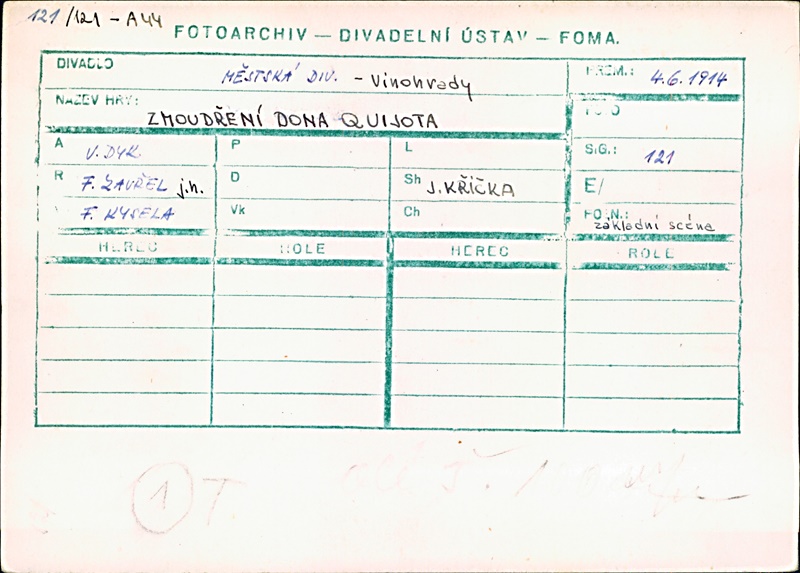 121/121 - A44
FOTOARCHIV — DIVADELNÍ ÚSTAV — FOMA.
DIVADLO MĚSTSKÁ DIV. - Vinohrady
PREM.: 4.6.1914
NÁZEV HRY: ZMOUDŘENÍ DONA QUIJOTA
FOTO
A V. DYK P L SIG.: 121
R F. ZAVŘEL j.h. D Sh J. KŘIČKA E/
F. KYSELA Vk Ch POZN.: základní scéna
HEREC ROLE HEREC ROLE
1 T.